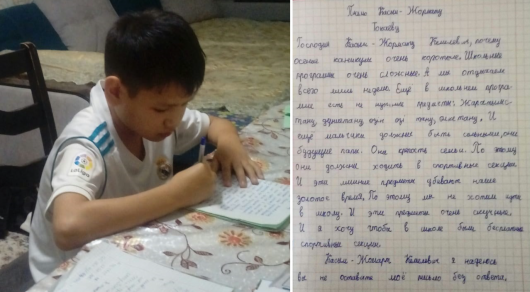 Касым - Жомарту
Токаеву
Господин Касым - Жомарт Кемелевич, почему
осенние каникулы очень короткие. Школьные
программы очень сложные. А мы отдыхаем
всего лишь неделю. Ещё в школьной програ-
мме есть не нужные предметы:
тану, өзін өзі тану, дінтану. И,
ещё мальчики должны быть сильными, они
будущие папы. Они крепость семьи. По этому
они должны ходить в спортивные секции.
И эти лишние предметы убивают наше
золотое время. По этому мы не хотим идти
в школу. И эти предметы очень скучные.
И я хочу чтобы в школе были бесплатные
спортивные секции.
Касым - Жомарт Кемелевич я надеюсь
вы не оставите моё письмо без ответа.
LaLiga